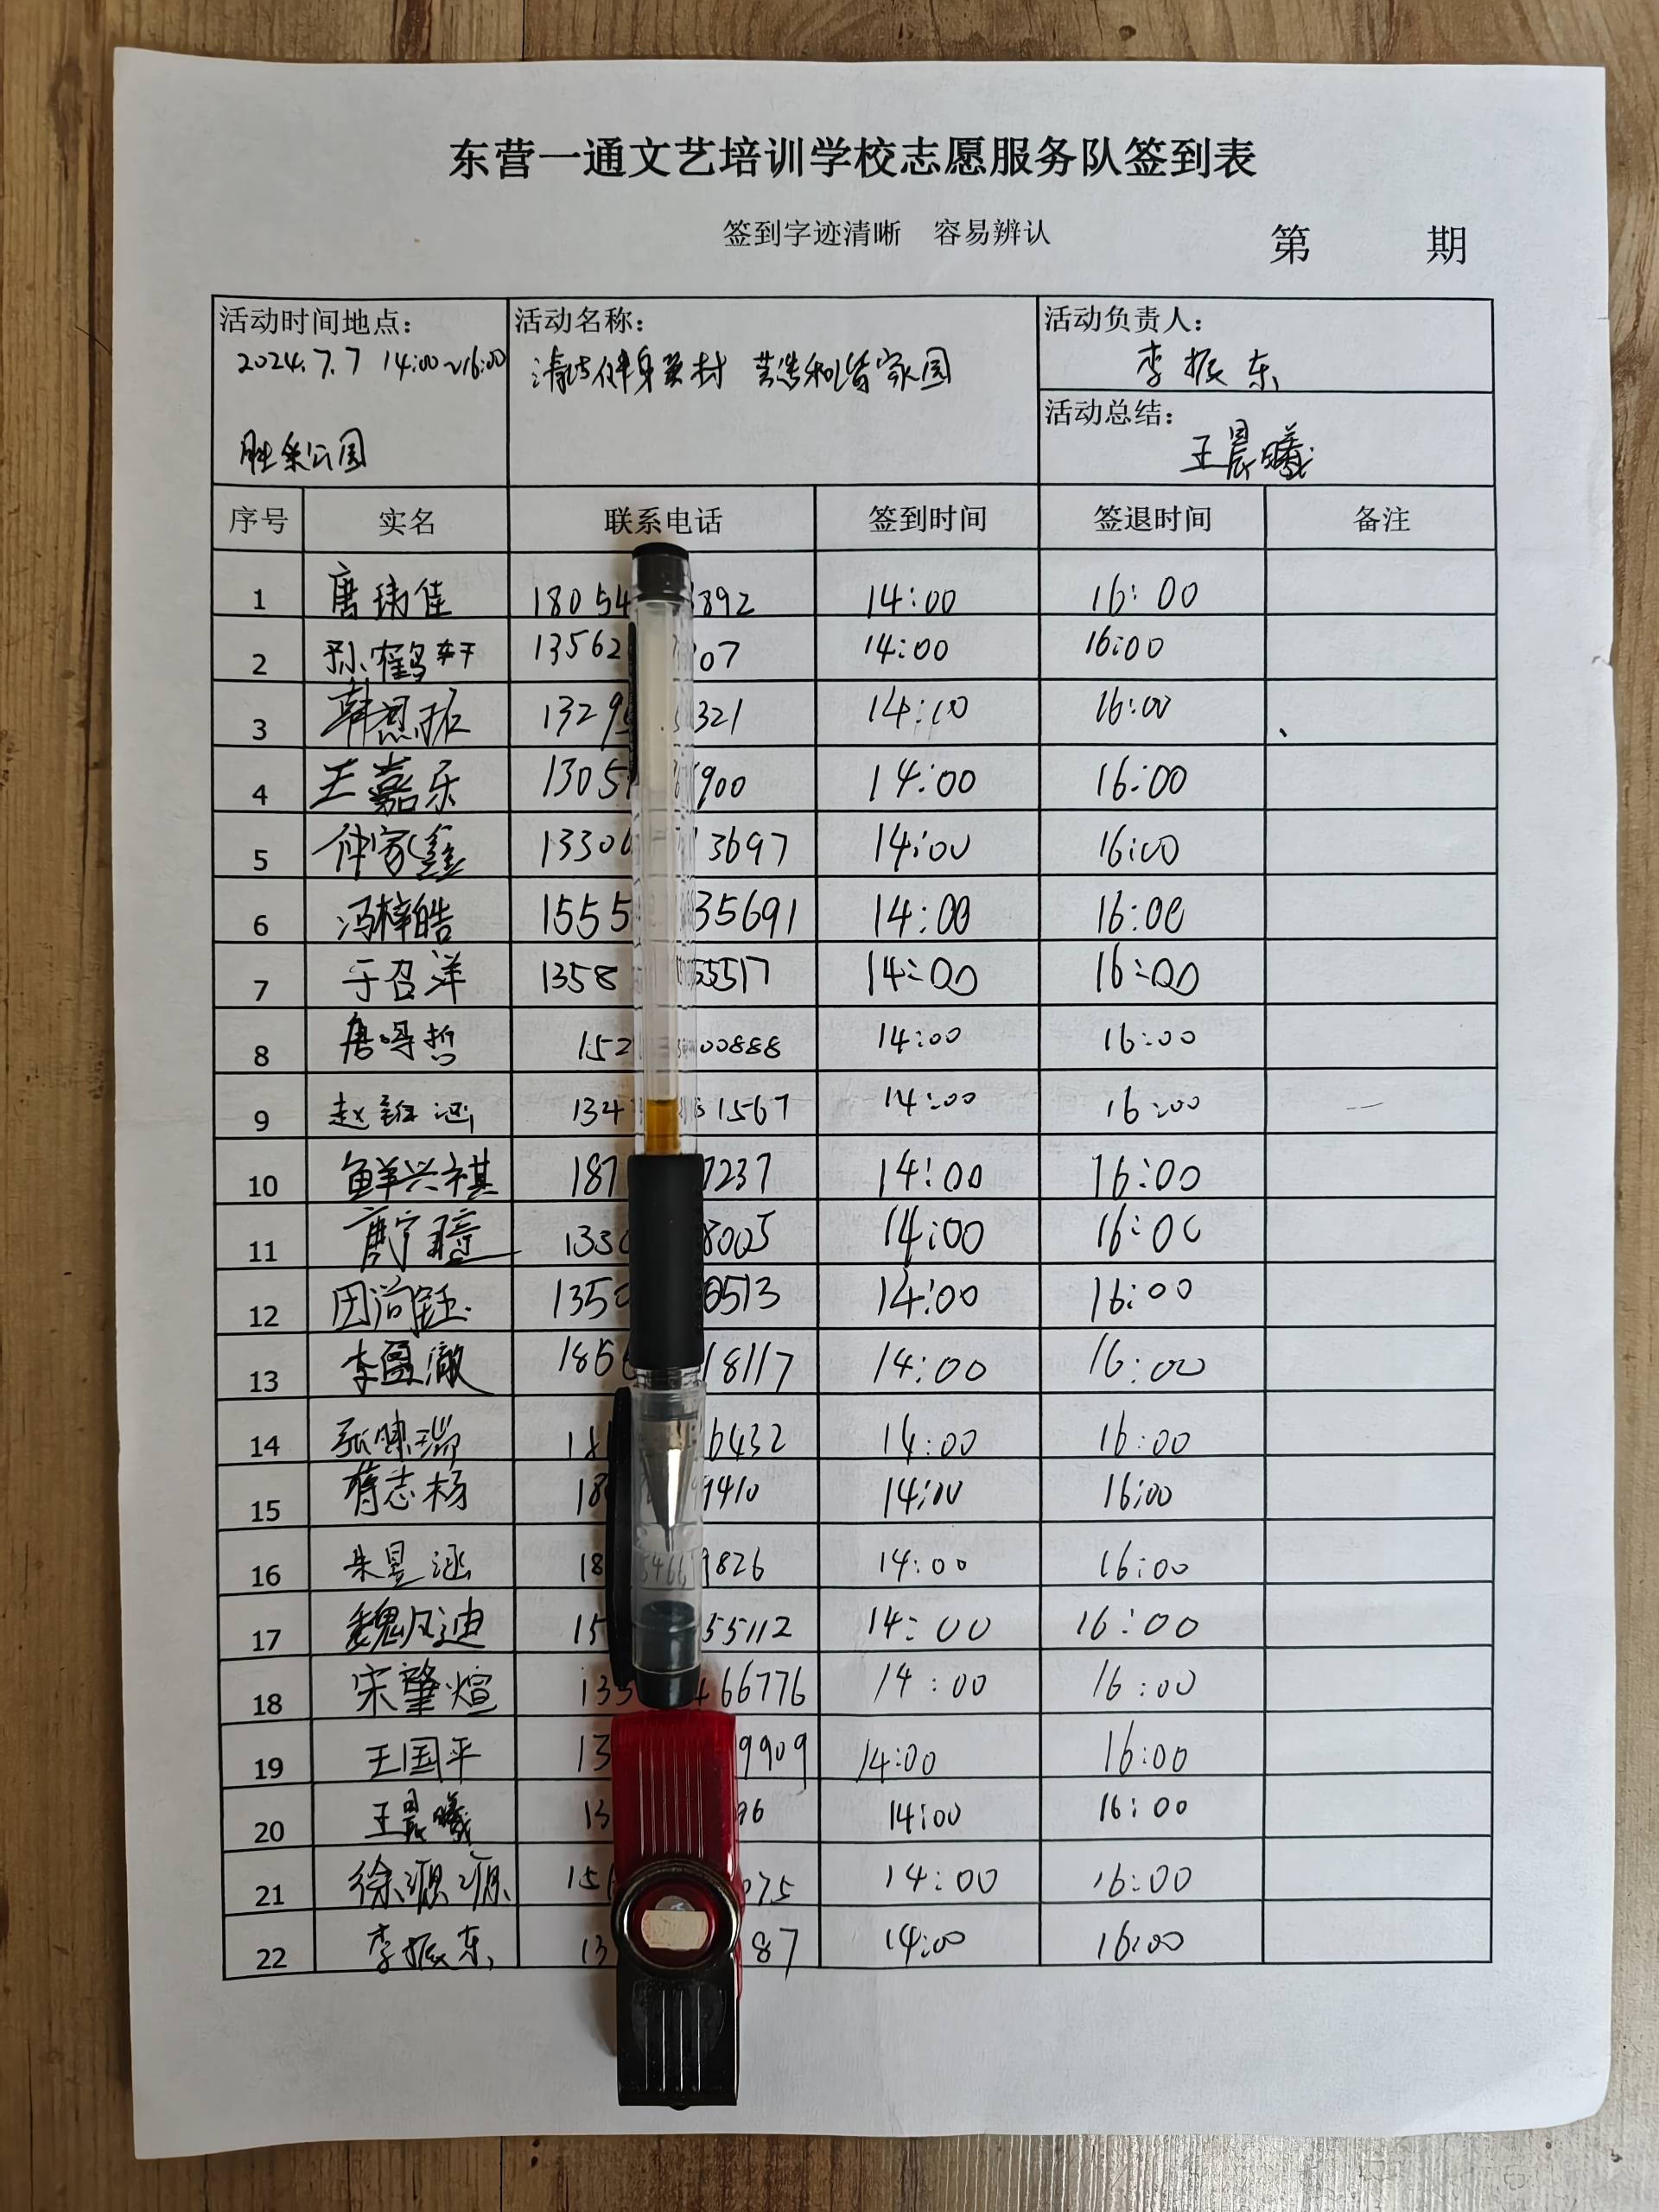 东营一通文艺培训学校志愿服务队签到表
签到字迹清晰 容易辨认
第 期
活动时间地点: 活动名称: 活动负责人:
2024.7.7 14:00~16:00 清洁健身器材 共造和谐家园 李振东
活动总结:
胜采公园 王晨曦
序号 实名 联系电话 签到时间 签退时间 备注
1 唐 佳 18054 892 14:00 16:00
2 孙鹤轩 13562 07 14:00 16:00
3 韩 1329 321 14:00 16:00
4 王嘉乐 1305 900 14:00 16:00
5 仲家鑫 1330 3697 14:00 16:00
6 冯梓皓 1555 35691 14:00 16:00
7 于召洋 1358 55517 14:00 16:00
8 唐 哲 152 00888 14:00 16:00
9 赵 涵 134 1567 14:00 16:00
10 鲜兴祺 187 7237 14:00 16:00
11 133 8005 14:00 16:00
12 135 0513 14:00 16:00
13 李 澈 186 18117 14:00 16:00
14 张 瑞 18 6432 14:00 16:00
15 蒋志杨 18 9410 14:00 16:00
16 朱昱涵 18 9826 14:00 16:00
17 魏风迪 15 55112 14:00 16:00
18 宋肇煊 133 66776 14:00 16:00
19 王国平 13 9909 14:00 16:00
20 王晨曦 13 96 14:00 16:00
21 徐源源 15 075 14:00 16:00
22 李振东 13 87 14:00 16:00